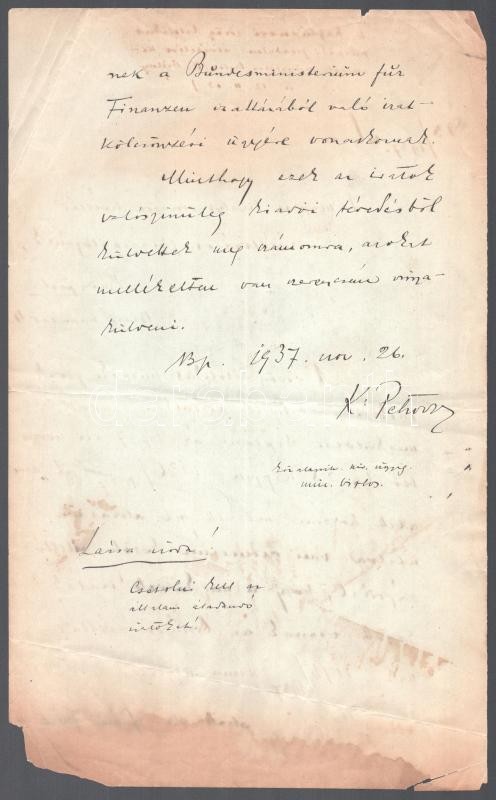 nek a Bundesministerium für
Finanzen irattárából való irat-
kölcsönzési ügyére vonatkoznak.
Minthogy ezek az iratok
valószinüleg kiadói tévedésből
küldettek meg számomra, azokat
mellékelten van szerencsém vissza-
küldeni.
Bp. 1937. nov. 26.
min.
Lássa iroda!
Csatolni kell az
általam átadandó
iratokat.